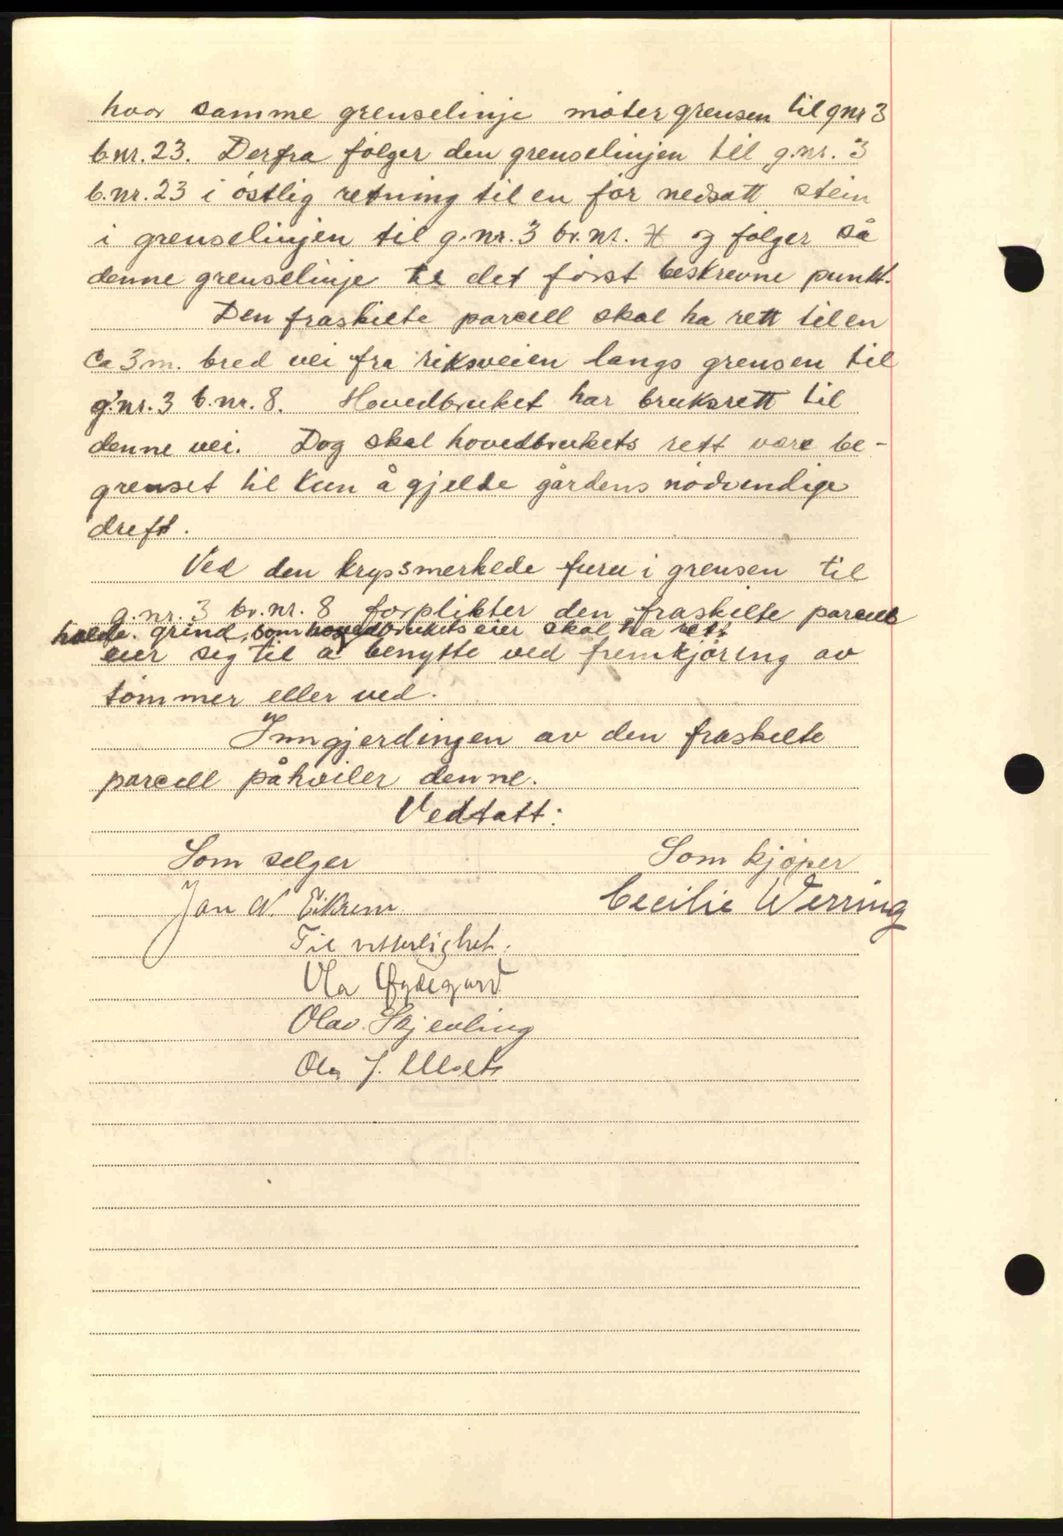 hvor samme grenselinje møter grensen til gnr 3
b.nr. 23. Derfra følger den grenselinjen til g.nr. 3
b.nr. 23 i østlig retning til en før nedsatt stein
i grenselinjen til g.nr. 3 br.nr. og følger så
denne grenselinje til det først beskrevne punkt.
Den fraskilte parcell skal ha rett til en
ca 3 m. bred vei fra riksveien langs grensen til
g.nr. 3 b.nr. 8. Hovedbruket har bruksrett til
denne vei. Dog skal hovedbrukets rett være be-
grenset til kun å gjelde gårdens nødvendige
drift.
Ved den kryssmerkede furu i grensen til
g.nr. 3 br.nr. 8 forplikter den fraskilte parcells
holde grind, som hovedbrukets eier skal ha rett
eier sig til å benytte ved fremkjøring av
tømmer eller ved.
Inngjerdingen av den fraskilte
parcell påhviler denne.
Vedtatt:
Som selger Som kjøper
Jon N. Eikrem Cecilie Werring
Til vitterlighet:
Ola Øydegard
Olav Skjevling
Ola J.